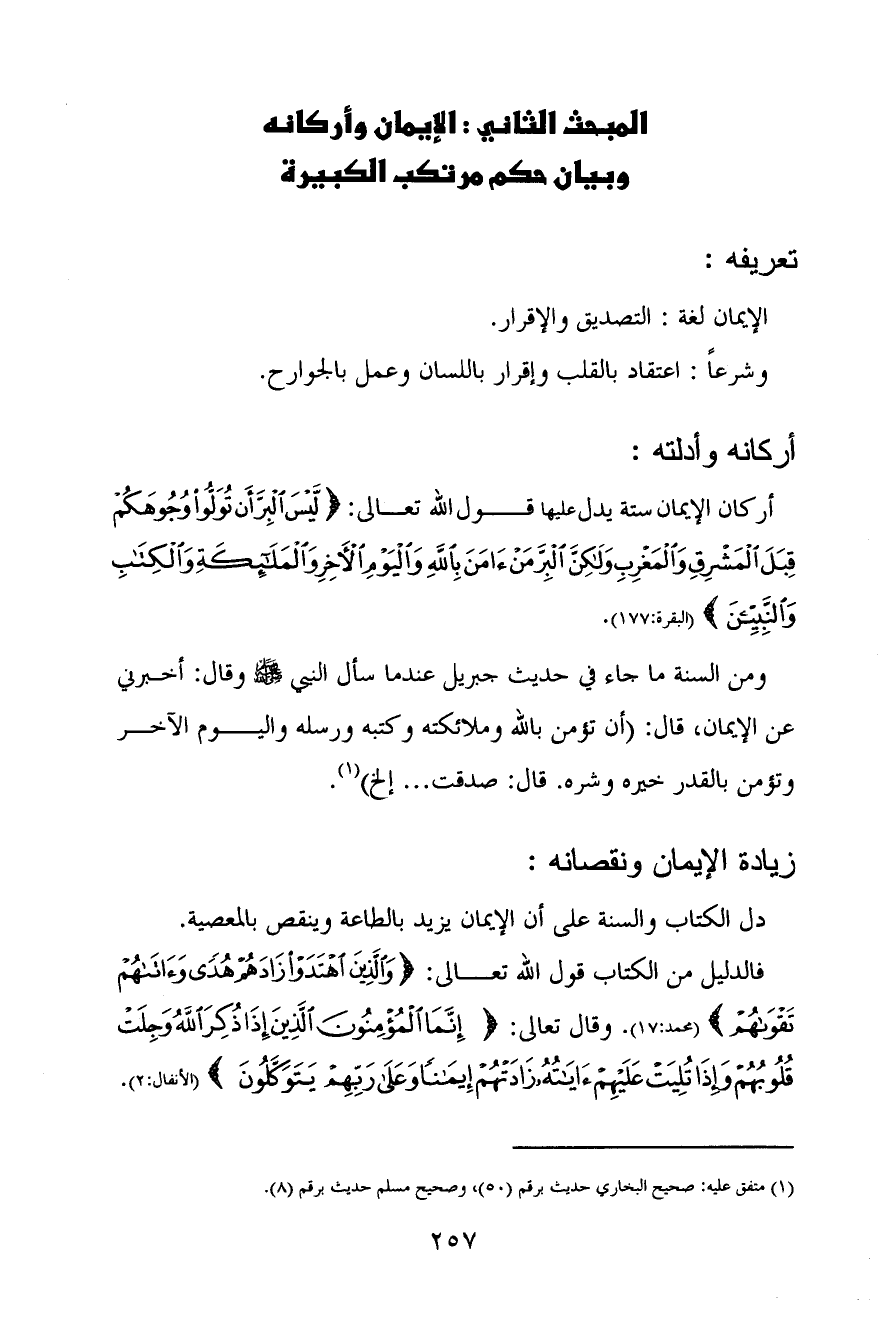 المبحث الثاني : الإيمان وأركانه
وبيان حكم مرتكب الكبيرة
تعريفه :
الإيمان لغة : التصديق والإقرار.
وشرعاً : اعتقاد بالقلب وإقرار باللسان وعمل بالجوارح.
أركانه وأدلته :
أركان الإيمان ستة يدل عليها قـــول الله تعـــالى: ﴿ لَّيْسَ ٱلْبِرَّ أَن تُوَلُّوا۟ وُجُوهَكُمْ
قِبَلَ ٱلْمَشْرِقِ وَٱلْمَغْرِبِ وَلَٰكِنَّ ٱلْبِرَّ مَنْ ءَامَنَ بِٱللَّهِ وَٱلْيَوْمِ ٱلْأَخِرِ وَٱلْمَلَٰٓئِكَةِ وَٱلْكِتَٰبِ
وَٱلنَّبِيِّـۧنَ ﴾ (البقرة:١٧٧).
ومن السنة ما جاء في حديث جبريل عندما سأل النبي ﷺ وقال: أخـبرني
عن الإيمان، قال: (أن تؤمن بالله وملائكته وكتبه ورسله واليـــوم الآخـــر
وتؤمن بالقدر خيره وشره. قال: صدقت... إلخ)(١).
زيادة الإيمان ونقصانه :
دل الكتاب والسنة على أن الإيمان يزيد بالطاعة وينقص بالمعصية.
فالدليل من الكتاب قول الله تعـــالى: ﴿ وَٱلَّذِينَ ٱهْتَدَوْا۟ زَادَهُمْ هُدًى وَءَاتَىٰهُمْ
تَقْوَىٰهُمْ ﴾ (محمد:١٧). وقال تعالى: ﴿ إِنَّمَا ٱلْمُؤْمِنُونَ ٱلَّذِينَ إِذَا ذُكِرَ ٱللَّهُ وَجِلَتْ
قُلُوبُهُمْ وَإِذَا تُلِيَتْ عَلَيْهِمْ ءَايَٰتُهُۥ زَادَتْهُمْ إِيمَٰنًا وَعَلَىٰ رَبِّهِمْ يَتَوَكَّلُونَ ﴾ (الأنفال:٢).
(١) متفق عليه: صحيح البخاري حديث برقم (٥٠)، وصحيح مسلم حديث برقم (٨).
٢٥٧